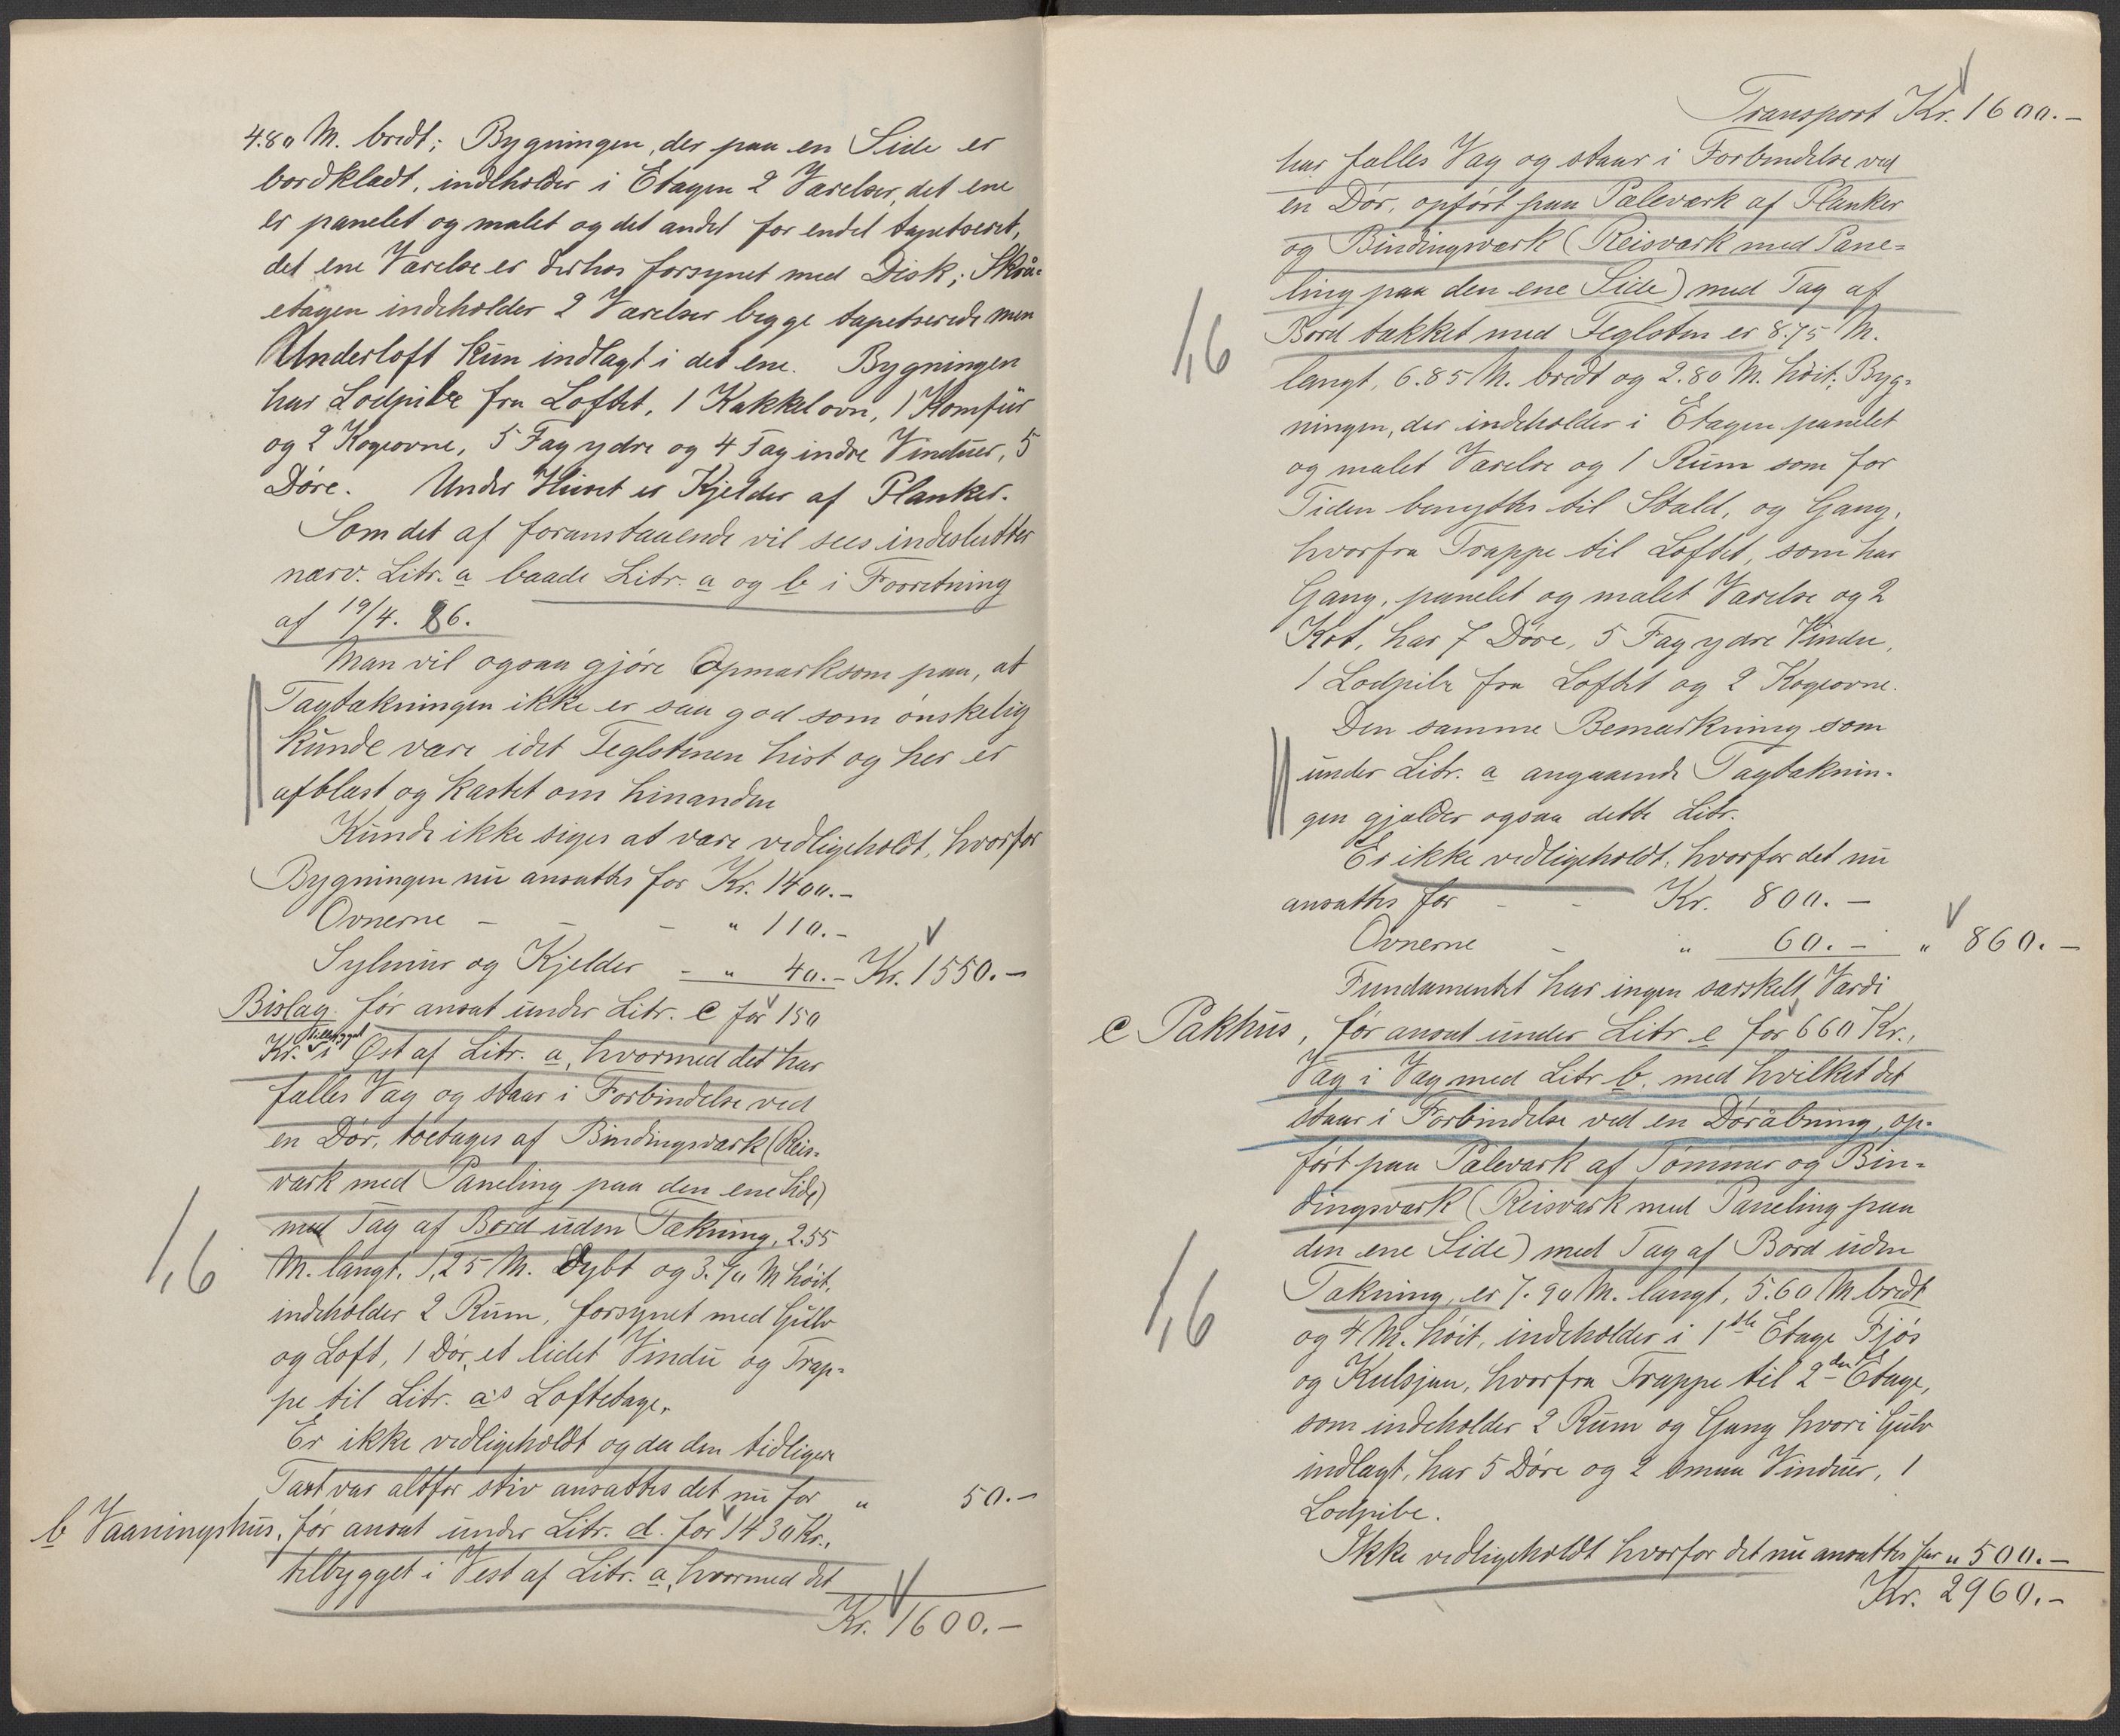 4.80 M. bredt; Bygningen, der paa en Side er
bordklædt, indeholder i Etagen 2 Værelser, det ene
er panelet og malet og det andet for endel tapetseret,
det ene Værelse er derhos forsynet med Disk; Skrå-
etagen indeholder 2 Værelser begge tapetserede men
Underloft kun indlagt i det ene. Bygningen
har Lodpibe fra Loftet, 1 Kakkelovn, 1 Komfür
og 2 Kogeovne, 5 Fag ydre og 4 Fag indre Vinduer, 5
Døre. Under Huset er Kjelder af Planker.
Som det af foranstaaende vil sees indeslutter
nærv. Litr. a baade Litr. a og b i Forretning
af 19/4. 86.
Man vil ogsaa gjøre Opmærksom paa, at
Tagtækningen ikke er saa god som ønskelig
kunde være idet Teglstenen hist og her er
afblæst og kastet om hinanden
Kunde ikke siges at være vedligeholdt, hvorfor
Bygningen nu ansættes for Kr. 1400.-
Ovnerne - - - " 110.-
Sylmur og Kjelder - " 40.- Kr. 1550.-
Bislag. før ansat under Litr. c for 150
Kr. tilbygget i Øst af Litr. a, hvormed det har
fælles Væg og staar i Forbindelse ved
en Dør, toetages af Bindingsværk (Reis-
værk med Paneling paa den ene Side)
med Tag af Bord uden Tækning, 2.55
M. langt, 1,25 M. Dybt og 3.40 M høit,
indeholder 2 Rum, forsynet med Gulv
og Loft, 1 Dør, et lidet Vindu og Trap-
pe til Litr. a's Loftetage.
Er ikke vedligeholdt og da den tidligere
Taxt var altfor stiv ansættes det nu for " 50.-
b Vaaningshus, før ansat under Litr. d. for 1430 Kr.,
tilbygget i Vest af Litr. a, hvormed det
Kr. 1600.-
1,6
Transport Kr. 1600.-
har fælles Væg og staar i Forbindelse ved
en Dør, opført paa Pæleværk af Planker
og Bindingsværk (Reisværk med Pane-
ling paa den ene Side) med Tag af
Bord tækket med Teglsten er 8.75 M.
langt, 6.85 M. bredt og 2.80 M. høit; Byg-
ningen, der indeholder i Etagen panelet
og malet Værelse og 1 Rum som for
Tiden benyttes til Stald, og Gang,
hvorfra Trappe til Loftet, som har
Gang, panelet og malet Værelse og 2
Kot, har 7 Døre, 5 Fag ydre Vindu,
1 Lodpibe fra Loftet og 2 Kogeovne.
Den samme Bemærkning som
under Litr. a angaaende Tagtæknin-
gen gjælder ogsaa dette Litr.
Er ikke vedligeholdt, hvorfor det nu
ansættes for - - Kr. 800.-
Ovnerne - " 60.- " 860.-
Fundamentet har ingen særskilt Værdi
c Pakhus, før ansat under Litr e for 660 Kr.,
Væg i Væg med Litr b. med hvilket det
staar i Forbindelse ved en Døråbning, op-
ført paa Pæleværk af Tømmer og Bin-
dingsværk (Reisværk med Paneling paa
den ene Side) med Tag af Bord uden
Tækning, er 7.90 M. langt, 5.60 M bredt
og 4 M. høit, indeholder i 1ste Etage Fjøs
og Kulsjaa, hvorfra Trappe til 2den Etage,
som indeholder 2 Rum og Gang hvori Gulv
indlagt, har 5 Døre og 2 smaa Vinduer, 1
Lodpibe.
Ikke vedligeholdt hvorfor det nu ansættes for " 500.-
Kr. 2960.-
1,6
1,6